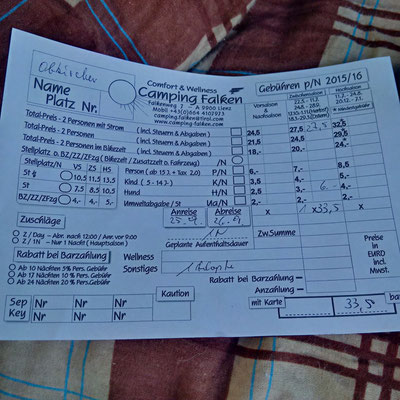 Name
Platz Nr.
Comfort & Wellness
Camping Falken
Falkenweg 7 - A 9900 Lienz
Mobil +43(0)664 4107973
camping.falken@tirol.com
www.camping-falken.com
Gebühren p/N 2015/16
Vorsaison Zwischensaison Hochsaison
Total-Preis - 2 Personen mit Strom (incl. Steuern & Abgaben) 24,5 27,5 27,5 32,5
Total-Preis - 2 Personen (incl. Steuern & Abgaben) 21,5 24,5 29,5
Total-Preis - 2 Personen im Bikezelt (incl. Steuern & Abgaben) 18,- 20,- 24,-
Stellplatz o. BZ/ZZ/FZg (Bikezelt / Zusatzzelt o. Fahrzeug) /N
Stellplatz/N VS ZS HS
St 10,5 11,5 13,5
St 7,5 8,5 10,5
BZ/ZZ/FZg 4,- 4,- 5,-
Person (ab 15 J. + Tax 2,0) P/N 6,- 7,- 8,5
Kind ( 5 - 14 J.) K/N 3,5 4,- 5,-
Hund H/N 2,- 3,- 6 4,-
Umweltabgabe / St Ua/N 2,- 2,- 2,-
Zuschläge
Z / Day - Abr. nach 12:00 / Anr. vor 9:00
Z / 1N - Nur 1 Nacht (Hauptsaison)
Anreise Abreise
25.9. 26.9.
1 N
Geplante Aufenthaltsdauer
x 1 x 33,5 x
Zw.Summe
Preise in EURO incl. Mwst.
Rabatt bei Barzahlung
Ab 10 Nächten 5% Pers. Gebühr
Ab 17 Nächten 10 % Pers. Gebühr
Ab 24 Nächten 20 % Pers. Gebühr
Wellness
Sonstiges
Rabatt bei Barzahlung -
Anzahlung -
Sep Nr Nr Nr
Key Nr Nr Nr
Kaution
mit Karte 33,5 bar